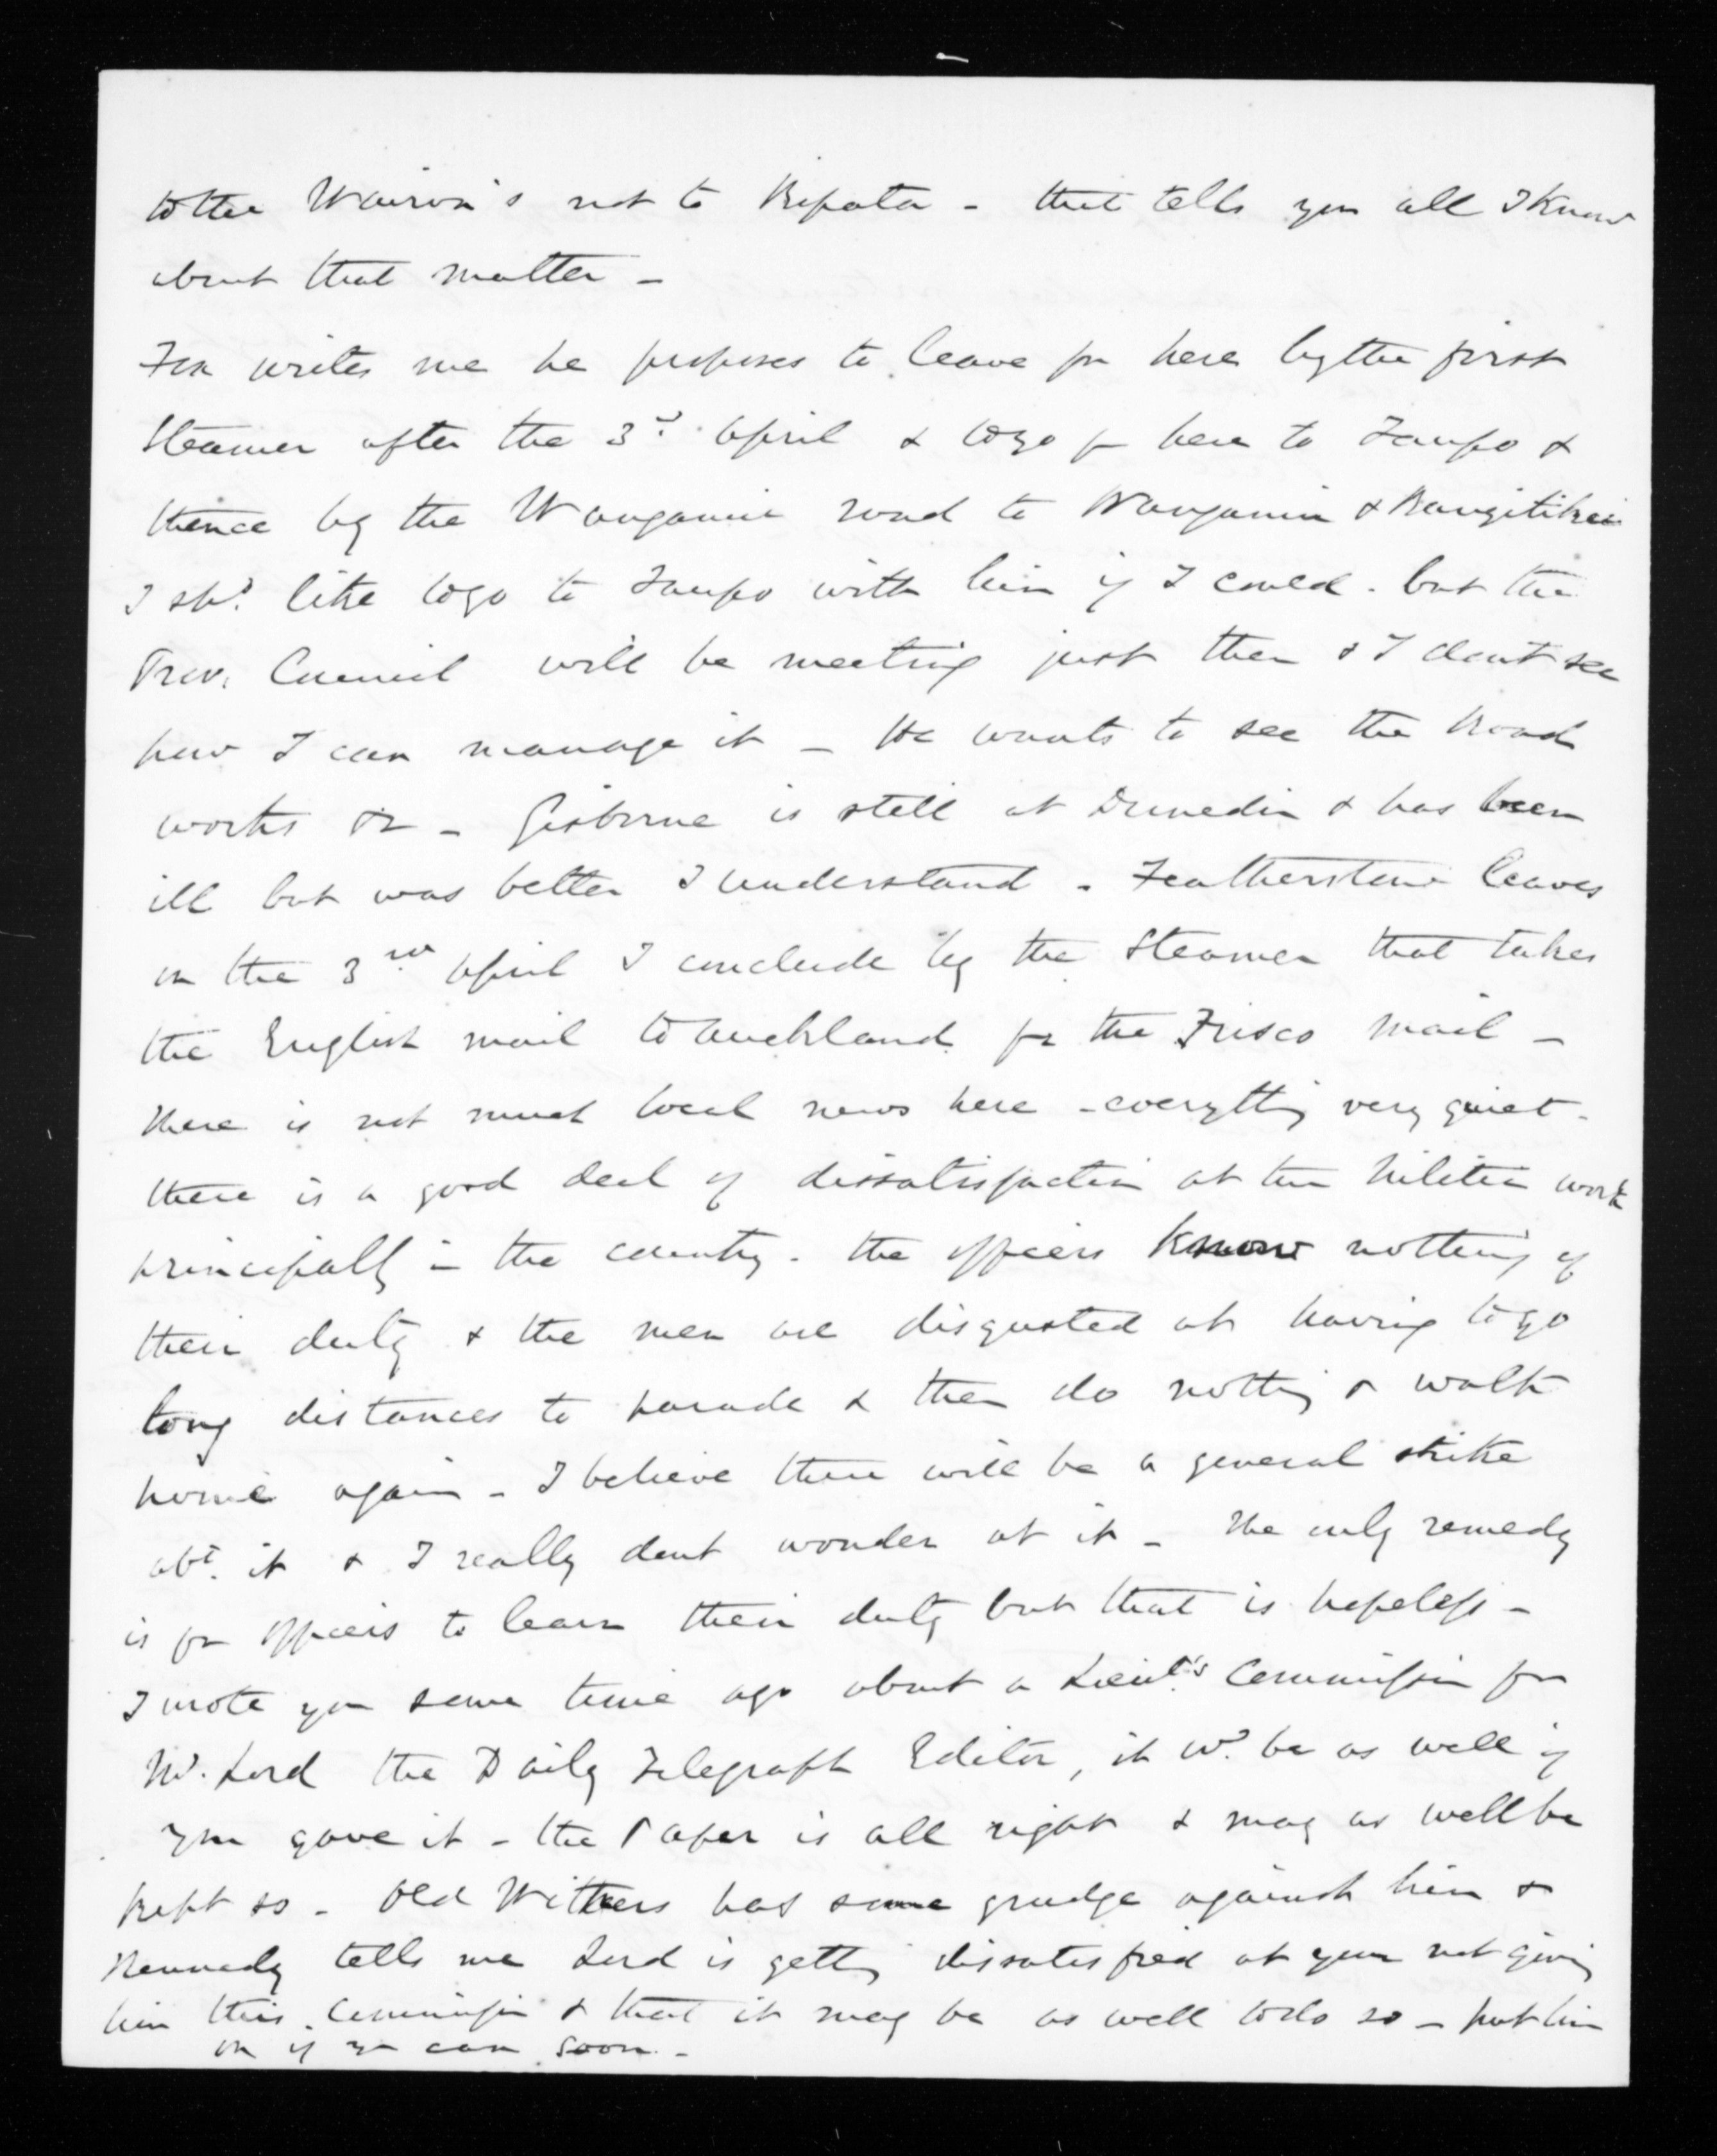 to the Wairoa's not to Ropata - that tells you all I know
about that matter -
Fox writes me he proposes to leave for here by the first
Steamer after the 3d. April & to go fm here to Taupo &
thence by the Wanganui road to Wanganui & Rangitikei
I shd. like to go to Taupo with him if I could - but the
Prov. Council will be meeting just then & I dont see
how I can manage it - He wants to see the Road
works &c - Gisborne is still at Dunedin & has been
ill but was better I understand - Featherstone leaves
on the 3rd April I conclude by the Steamer that takes
the English mail to Auckland for the Frisco Mail -
There is not much local news here - everything very quiet -
there is a good deal of dissatisfaction at the Militia work
principally in the country - the officers know nothing of
their duty & the men are disgusted at having to go
long distances to parade & then do nothing & walk
home again - I believe there will be a general strike
abt. it & I really dont wonder at it - The only remedy
is for officers to learn their duty but that is hopeless -
I wrote you some time ago about a Lieut's Commission for
Mr. Lord the Daily Telegraph Editor, it wd. be as well if
you gave it - the Paper is all right & may as well be
kept so - Old Withers has some grudge against him &
Kennedy tells me Lord is getting dissatisfied at your not giving
him this Commission & that it may be as well to do so - put him
on if you can soon -